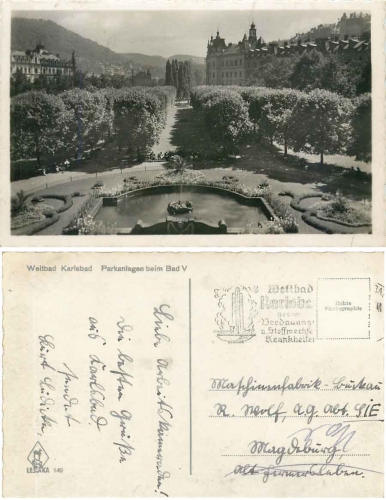 Weltbad Karlsbad Parkanlagen beim Bad V
Weltbad
Karlsba
gegen
Verdauungs-
u. Stoffwechs
Krankheiten
Echte
Photographie
Liebe Arbeitskameraden!
Die besten Grüße
aus Karlsbad,
sendet
Kurt Lüdicke
Maschinenfabrik-Buckau
R. Wolf, A.G. Abt. GIE
Magdeburg
Alt Fermersleben.
LESAKA 149